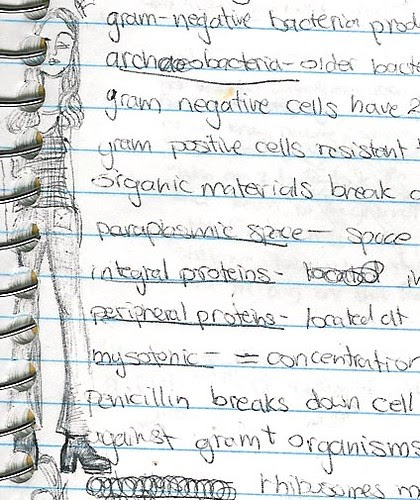 gram-negative bacteria prod
archaeobacteria - older bacte
gram negative cells have 2
gram positive cells resistant t
organic materials break d
paraplasmic space - space
integral proteins - located in
peripheral proteins - located at
mysotonic - = concentration
penicillin breaks down cell
against gram+ organisms
rhibosomes